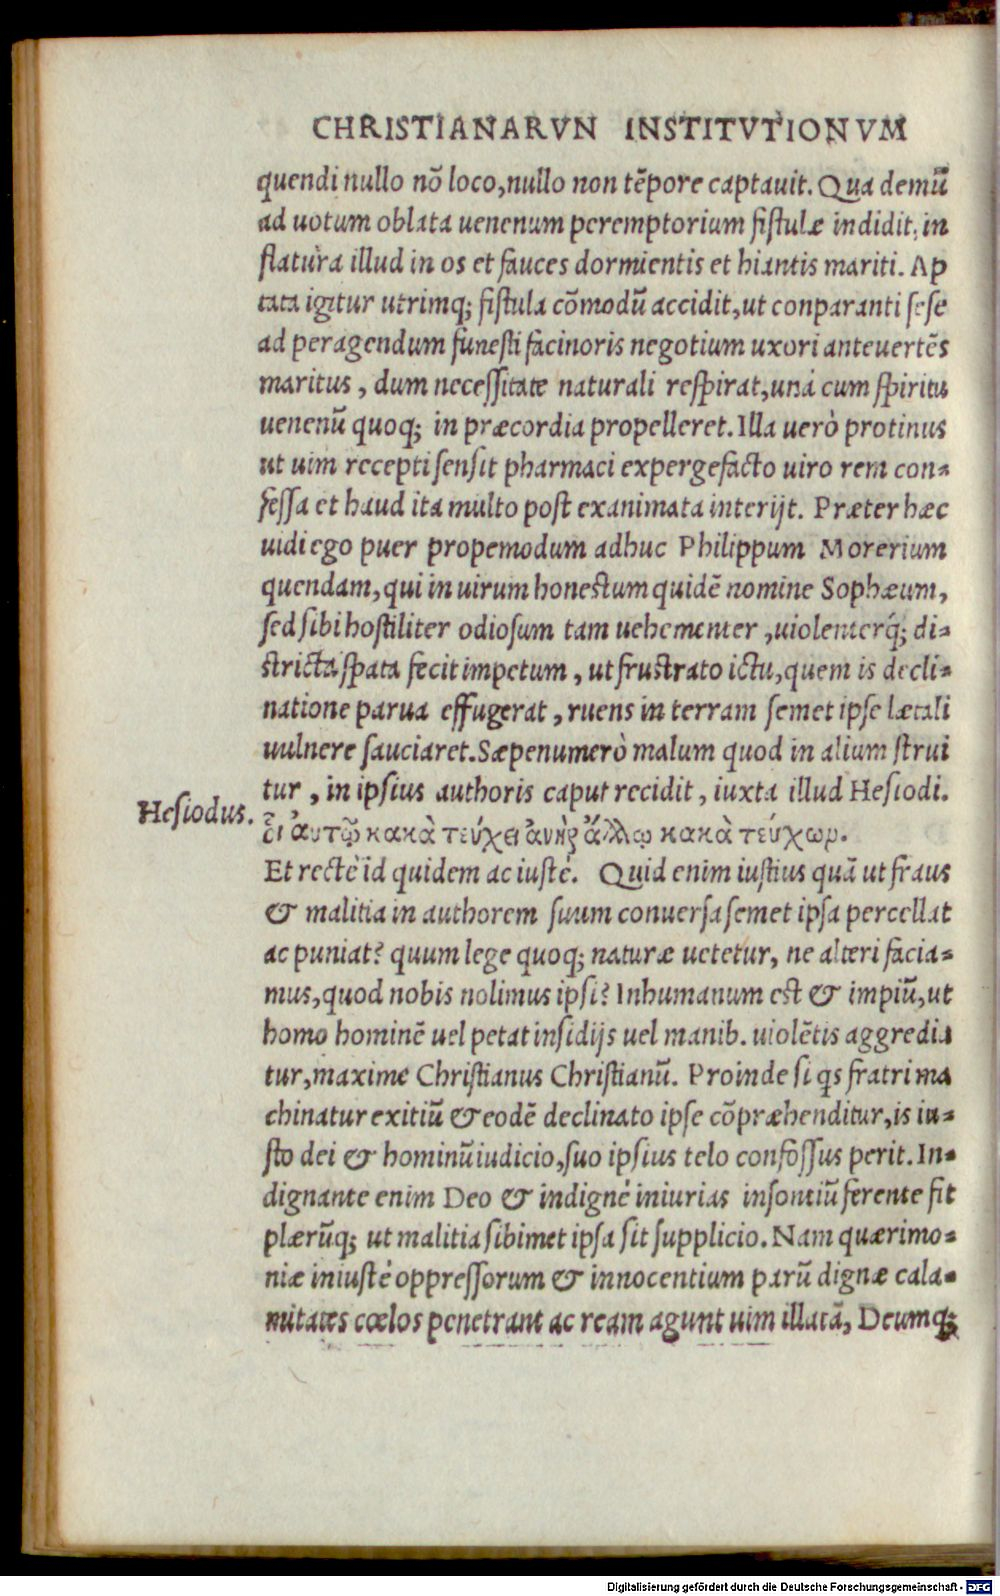 CHRISTIANARVN INSTITVTIONVM
quendi nullo nõ loco, nullo non tẽpore captauit. Qua demũ
ad uotum oblata uenenum peremptorium fistulæ indidit, in
flatura illud in os et fauces dormientis et hiantis mariti. Ap
tata igitur utrimq; fistula cõmodũ accidit, ut conparanti sese
ad peragendum funesti facinoris negotium uxori anteuertẽs
maritus, dum necessitate naturali respirat, unà cum spiritu
uenenũ quoq; in præcordia propelleret. Illa uerò protinus
ut uim recepti sensit pharmaci expergefacto uiro rem con-
fessa et haud ita multo post exanimata interijt. Præter hæc
uidi ego puer propemodum adhuc Philippum Morerium
quendam, qui in uirum honestum quidẽ nomine Sophæum,
sed sibi hostiliter odiosum tam uehementer, uiolenterq́; di-
stricta spata fecit impetum, ut frustrato ictu, quem is decli-
natione parua effugerat, ruens in terram semet ipse lætali
uulnere sauciaret. Sæpenumerò malum quod in alium strui
tur, in ipsius authoris caput recidit, iuxta illud Hesiodi.
Hesiodus.
οἷ αυτῷ κακὰ τεύχει ἀνὴρ ἄλλῳ κακὰ τεύχων.
Et rectè id quidem ac iustè. Quid enim iustius quã ut fraus
& malitia in authorem suum conuersa semet ipsa percellat
ac puniat? quum lege quoq; naturæ uetetur, ne alteri facia-
mus, quod nobis nolimus ipsi? Inhumanum est & impiũ, ut
homo hominẽ uel petat insidijs uel manib. uiolẽtis aggredia
tur, maxime Christianus Christianũ. Proinde si qs fratri ma
chinatur exitiũ & eodẽ declinato ipse cõpræhenditur, is iu-
sto dei & hominũ iudicio, suo ipsius telo confossus perit. In-
dignante enim Deo & indignè iniurias insontiũ ferente fit
plærũq; ut malitia sibimet ipsa sit supplicio. Nam quærimo-
niæ iniustè oppressorum & innocentium parũ dignæ cala-
mitates cœlos penetrant ac ream agunt uim illatã, Deumq;
Digitalisierung gefördert durch die Deutsche Forschungsgemeinschaft - DFG